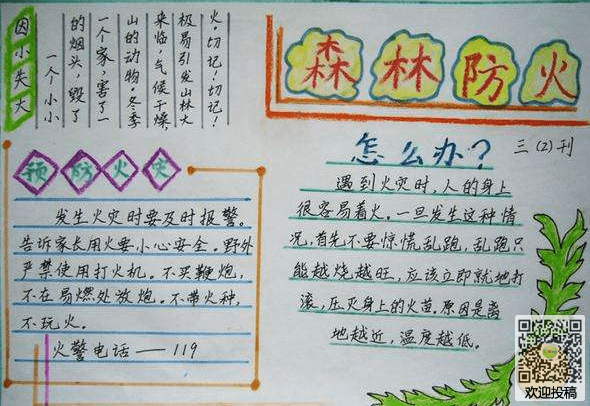 因小失大
一个小小
的烟头，毁了
一个家，害了一
山的动物。冬季
来临，气候干燥，
极易引发山林大
火，切记！切记！
森林防火
三（2）刊
预防火灾
发生火灾时要及时报警。
告诉家长用火要小心安全。野外
严禁使用打火机。不买鞭炮，
不在易燃处放炮。不带火种，
不玩火。
火警电话——119
怎么办？
遇到火灾时，人的身上
很容易着火。一旦发生这种情
况，首先不要惊慌乱跑，乱跑只
能越烧越旺，应该立即就地打
滚，压灭身上的火苗。原因是离
地越近，温度越低。
欢迎投稿